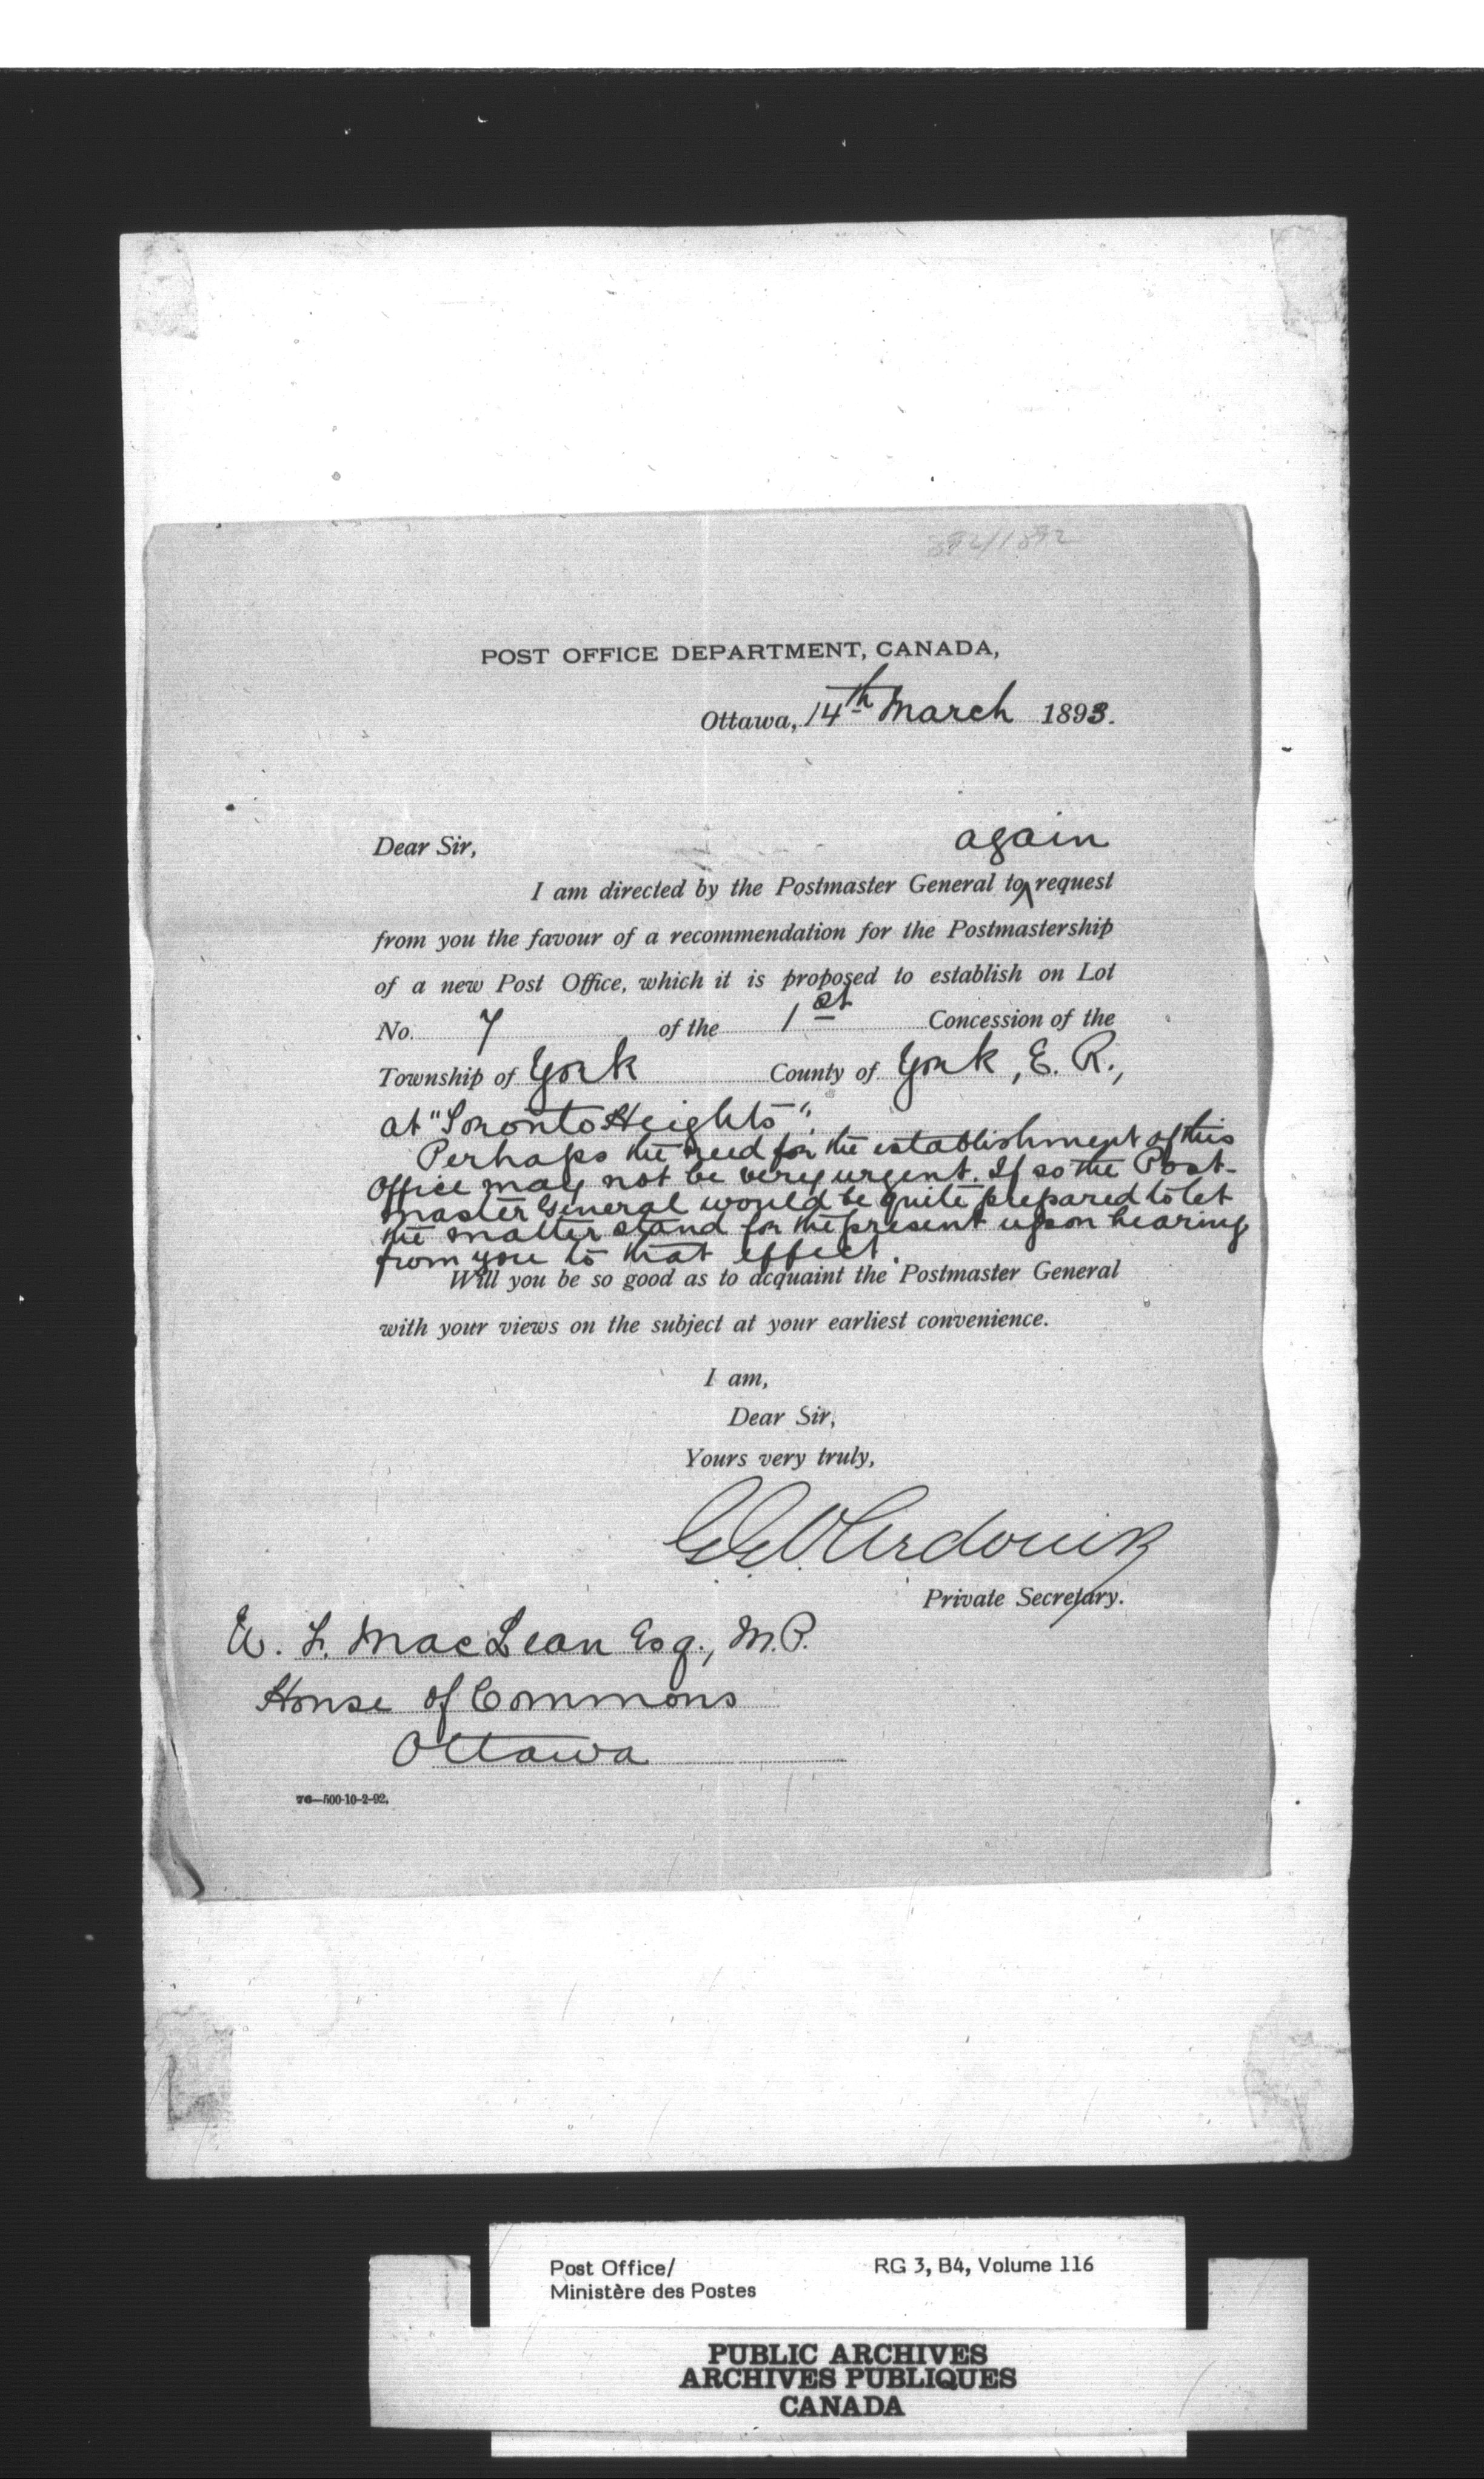 POST OFFICE DEPARTMENT, CANADA,
Ottawa, 14th March 1893.
again
Dear Sir,
I am directed by the Postmaster General to ^ request
from you the favour of a recommendation for the Postmastership
of a new Post Office, which it is proposed to establish on Lot
No. 7 of the 1st Concession of the
Township of York County of York, E. R.,
at "Toronto Heights".
Perhaps the need for the establishment of this
Office may not be very urgent. If so the Post-
master General would be quite prepared to let
the matter stand for the present upon hearing
from you to that effect.
Will you be so good as to acquaint the Postmaster General
with your views on the subject at your earliest convenience.
I am,
Dear Sir,
Yours very truly,
Private Secretary.
W. F. MacLean Esq., M.P.
House of Commons
Ottawa
76—500-10-2-92.
Post Office/ RG 3, B4, Volume 116
Ministère des Postes
PUBLIC ARCHIVES
ARCHIVES PUBLIQUES
CANADA